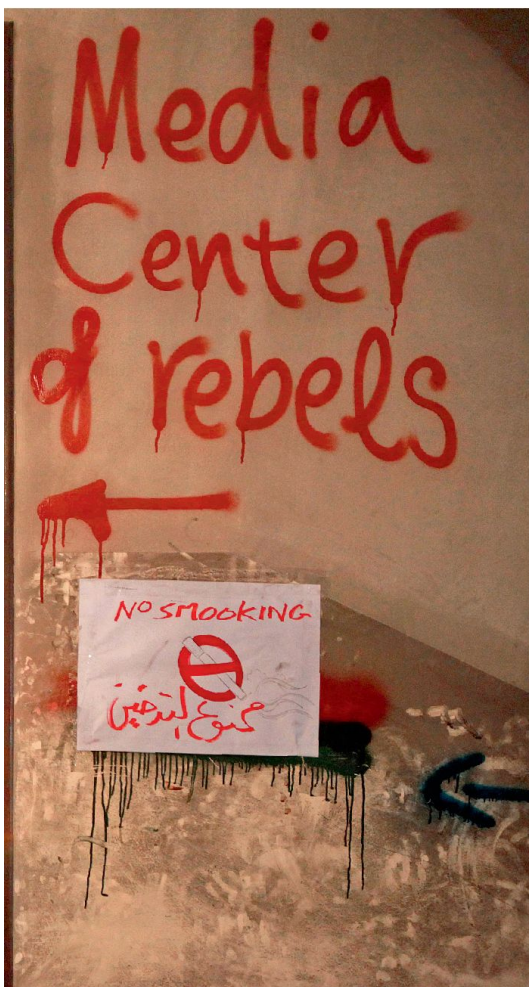 Media
Center
of rebels
NO SMOOKING
ممنوع التدخين